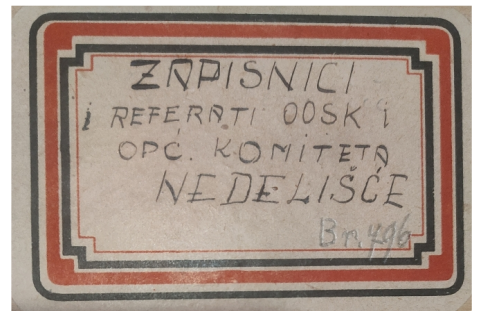 ZAPISNICI
i REFERATI OOSK i
OPĆ. KOMITETA
NEDELIŠĆE
Br. 496